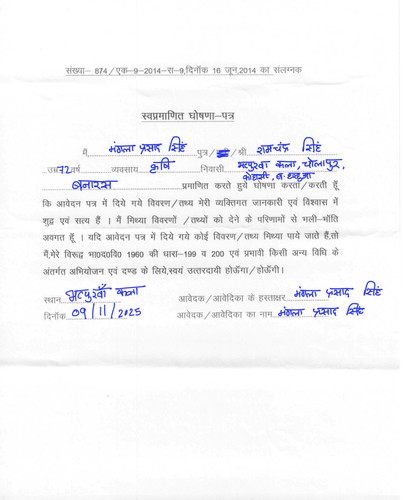 संख्या- 874 / एक-9-2014-रा-9,दिनाँक 16 जून,2014 का संलग्नक
स्वप्रमाणित घोषणा-पत्र
मैं, मंगला प्रसाद सिंह पुत्र / श्री रामचंद्र सिंह
उम्र 72 वर्ष व्यवसाय कृषि निवासी भटपुरवा कला, चोलापुर,
बनारस प्रमाणित करते हुये घोषणा करता / करती हूँ
कि आवेदन पत्र में दिये गये विवरण / तथ्य मेरी व्यक्तिगत जानकारी एवं विश्वास में
शुद्ध एवं सत्य हैं । मैं मिथ्या विवरणों / तथ्यों को देने के परिणामों से भली-भाँति
अवगत हूँ । यदि आवेदन पत्र में दिये गये कोई विवरण / तथ्य मिथ्या पाये जाते हैं,तो
मैं,मेरे विरूद्ध भा०द०वि० 1960 की धारा-199 व 200 एवं प्रभावी किसी अन्य विधि के
अंतर्गत अभियोजन एवं दण्ड के लिये,स्वयं उत्तरदायी होऊँगा / होऊँगी ।
स्थान भटपुरवाँ कला आवेदक / आवेदिका के हस्ताक्षर मंगला प्रसाद सिंह
दिनाँक 09/11/2025 आवेदक / आवेदिका का नाम मंगला प्रसाद सिंह